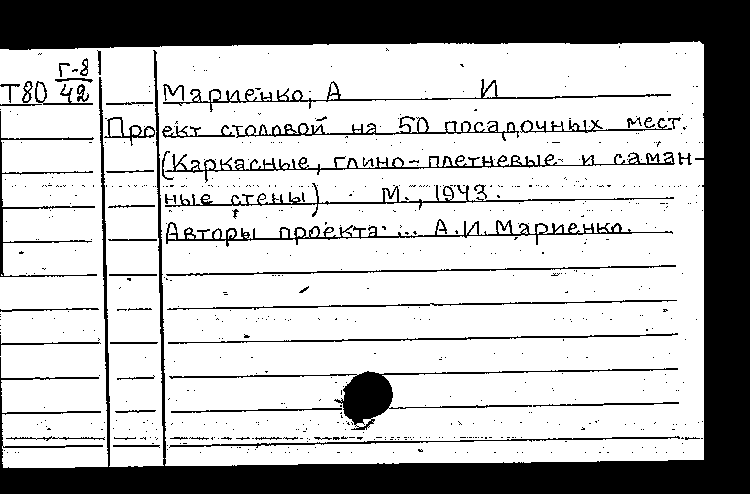 Г-8
Т80 42
Мариенко, А И
Проект столовой на 50 посадочных мест.
(Каркасные, глино-плетневые и саман-
ные стены). М., 1943.
Авторы проекта: ... А.И. Мариенко.